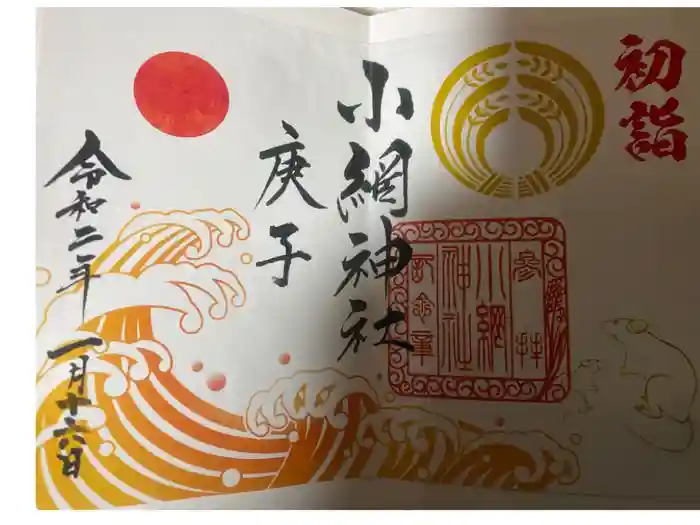 初詣
参拝
小網
神社
記念章
小網神社
庚子
令和二年一月十六日